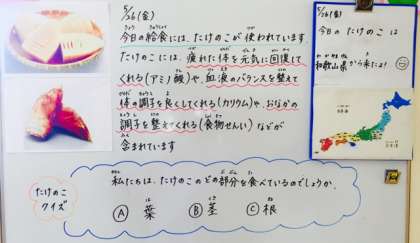 5/26(金)
今日の給食には、たけのこが使われています
たけのこには、疲れた体を元気に回復して
くれる(アミノ酸)や、血液のバランスを整えて
体の調子を良くしてくれる(カリウム)や、おなかの
調子を整えてくれる(食物せんい)などが
含まれています
5/26(金)
今日のたけのこは
和歌山県から来たよ!
たけのこ
クイズ
私たちは、たけのこのどの部分を食べているのでしょうか。
Ⓐ 葉 Ⓑ 茎 Ⓒ 根